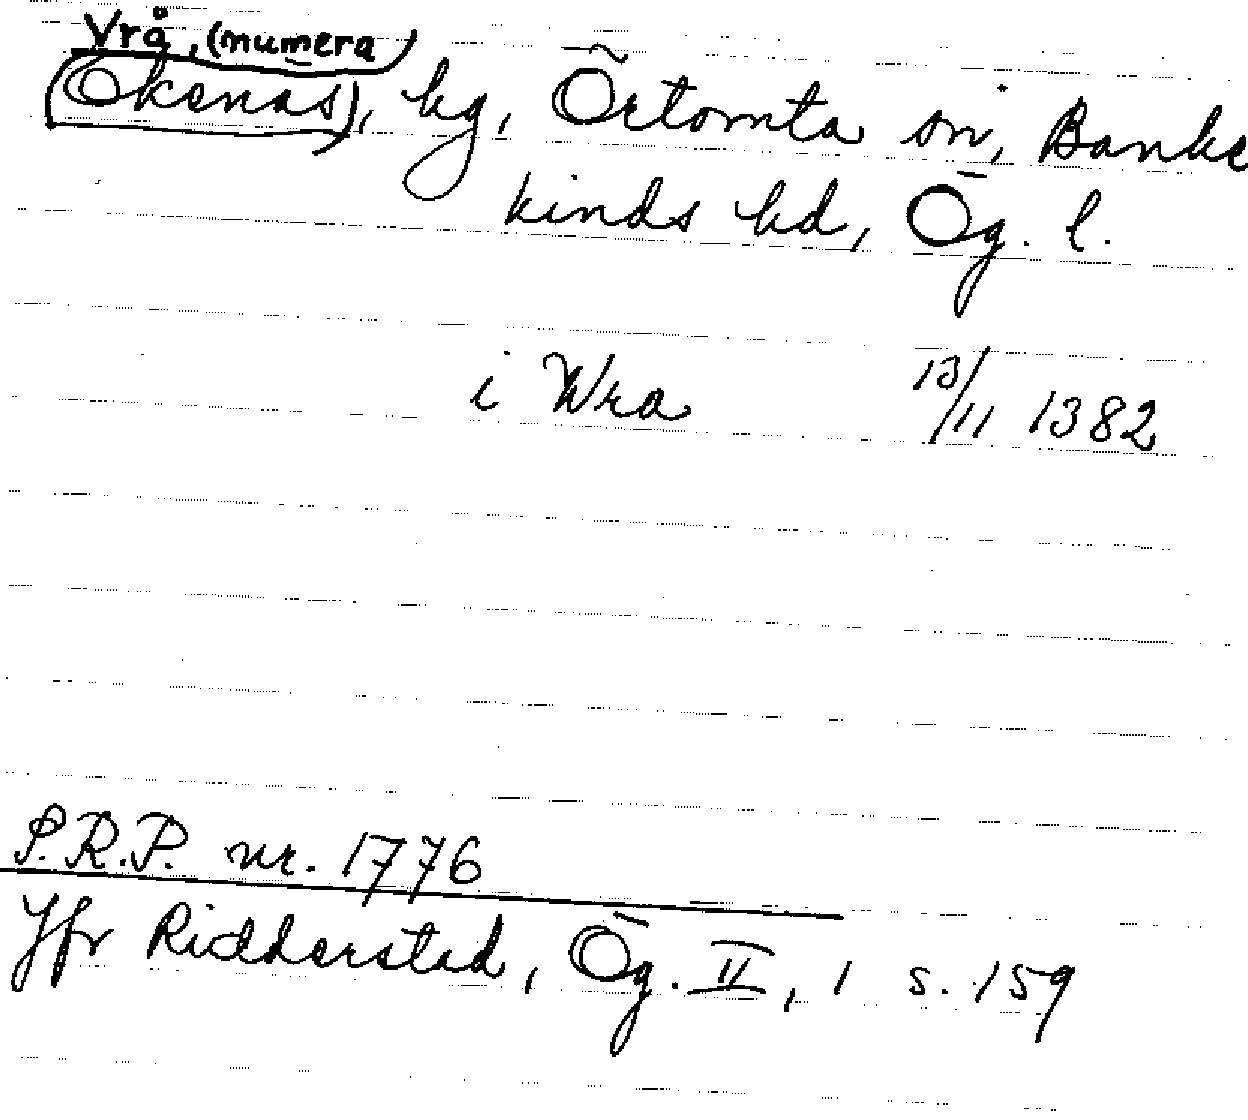 Vrå, (numera
Ökenäs), hg, Örtomta sn, Banke
kinds hd, Ög. l.
i Wra 13/11 1382
S.R.P. nr. 1776
Jfr Ridderstad, Ög. II, 1 s. 159